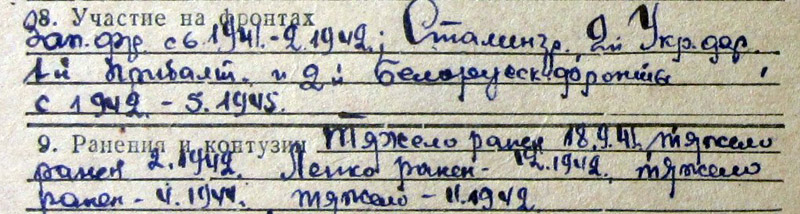 8. Участие на фронтах
Зап. фр. с 6.1941.-2.1942.; Сталингр. 2й Укр. фр.
1й Прибалт. и 2й Белорусск. фронты
с 1942. - 5.1945.
9. Ранения и контузии Тяжело ранен 18.9.41. тяжело
ранен 2.1942. Легко ранен - 12.1942. тяжело
ранен - 4.1944. тяжело -